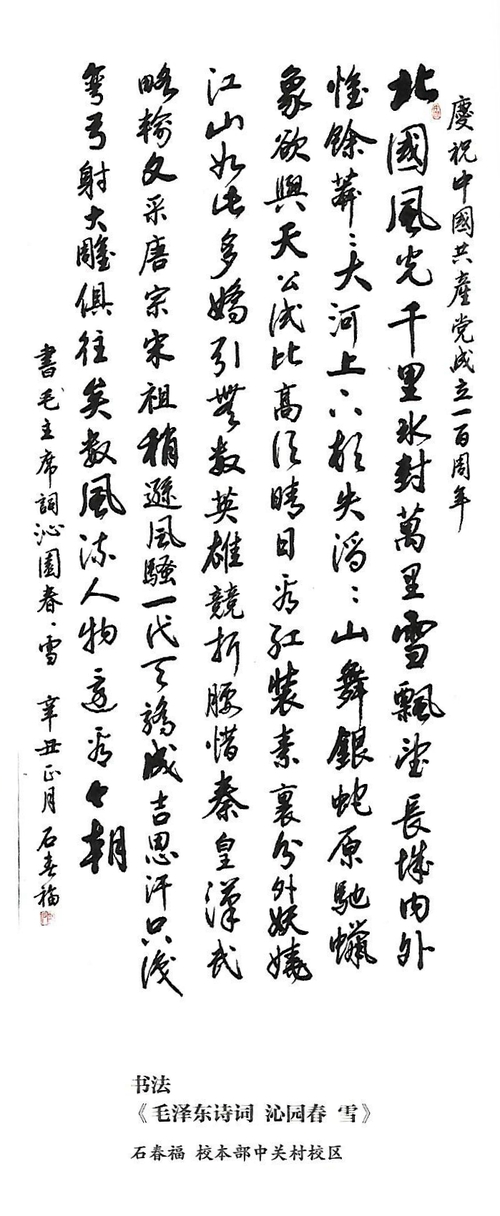 慶祝中國共產党成立一百周年
北國風光千里冰封萬里雪飄望長城内外
惟餘莽〻大河上下頓失滔〻山舞銀蛇原馳蠟
象欲與天公試比高須晴日看紅裝素裹分外妖嬈
江山如此多嬌引無數英雄競折腰惜秦皇漢武
略輸文采唐宗宋祖稍遜風騷一代天驕成吉思汗只識
彎弓射大雕俱往矣數風流人物還看今朝
書毛主席詞沁園春·雪 辛丑正月石春福
书法
《毛泽东诗词 沁园春 雪》
石春福 校本部中关村校区